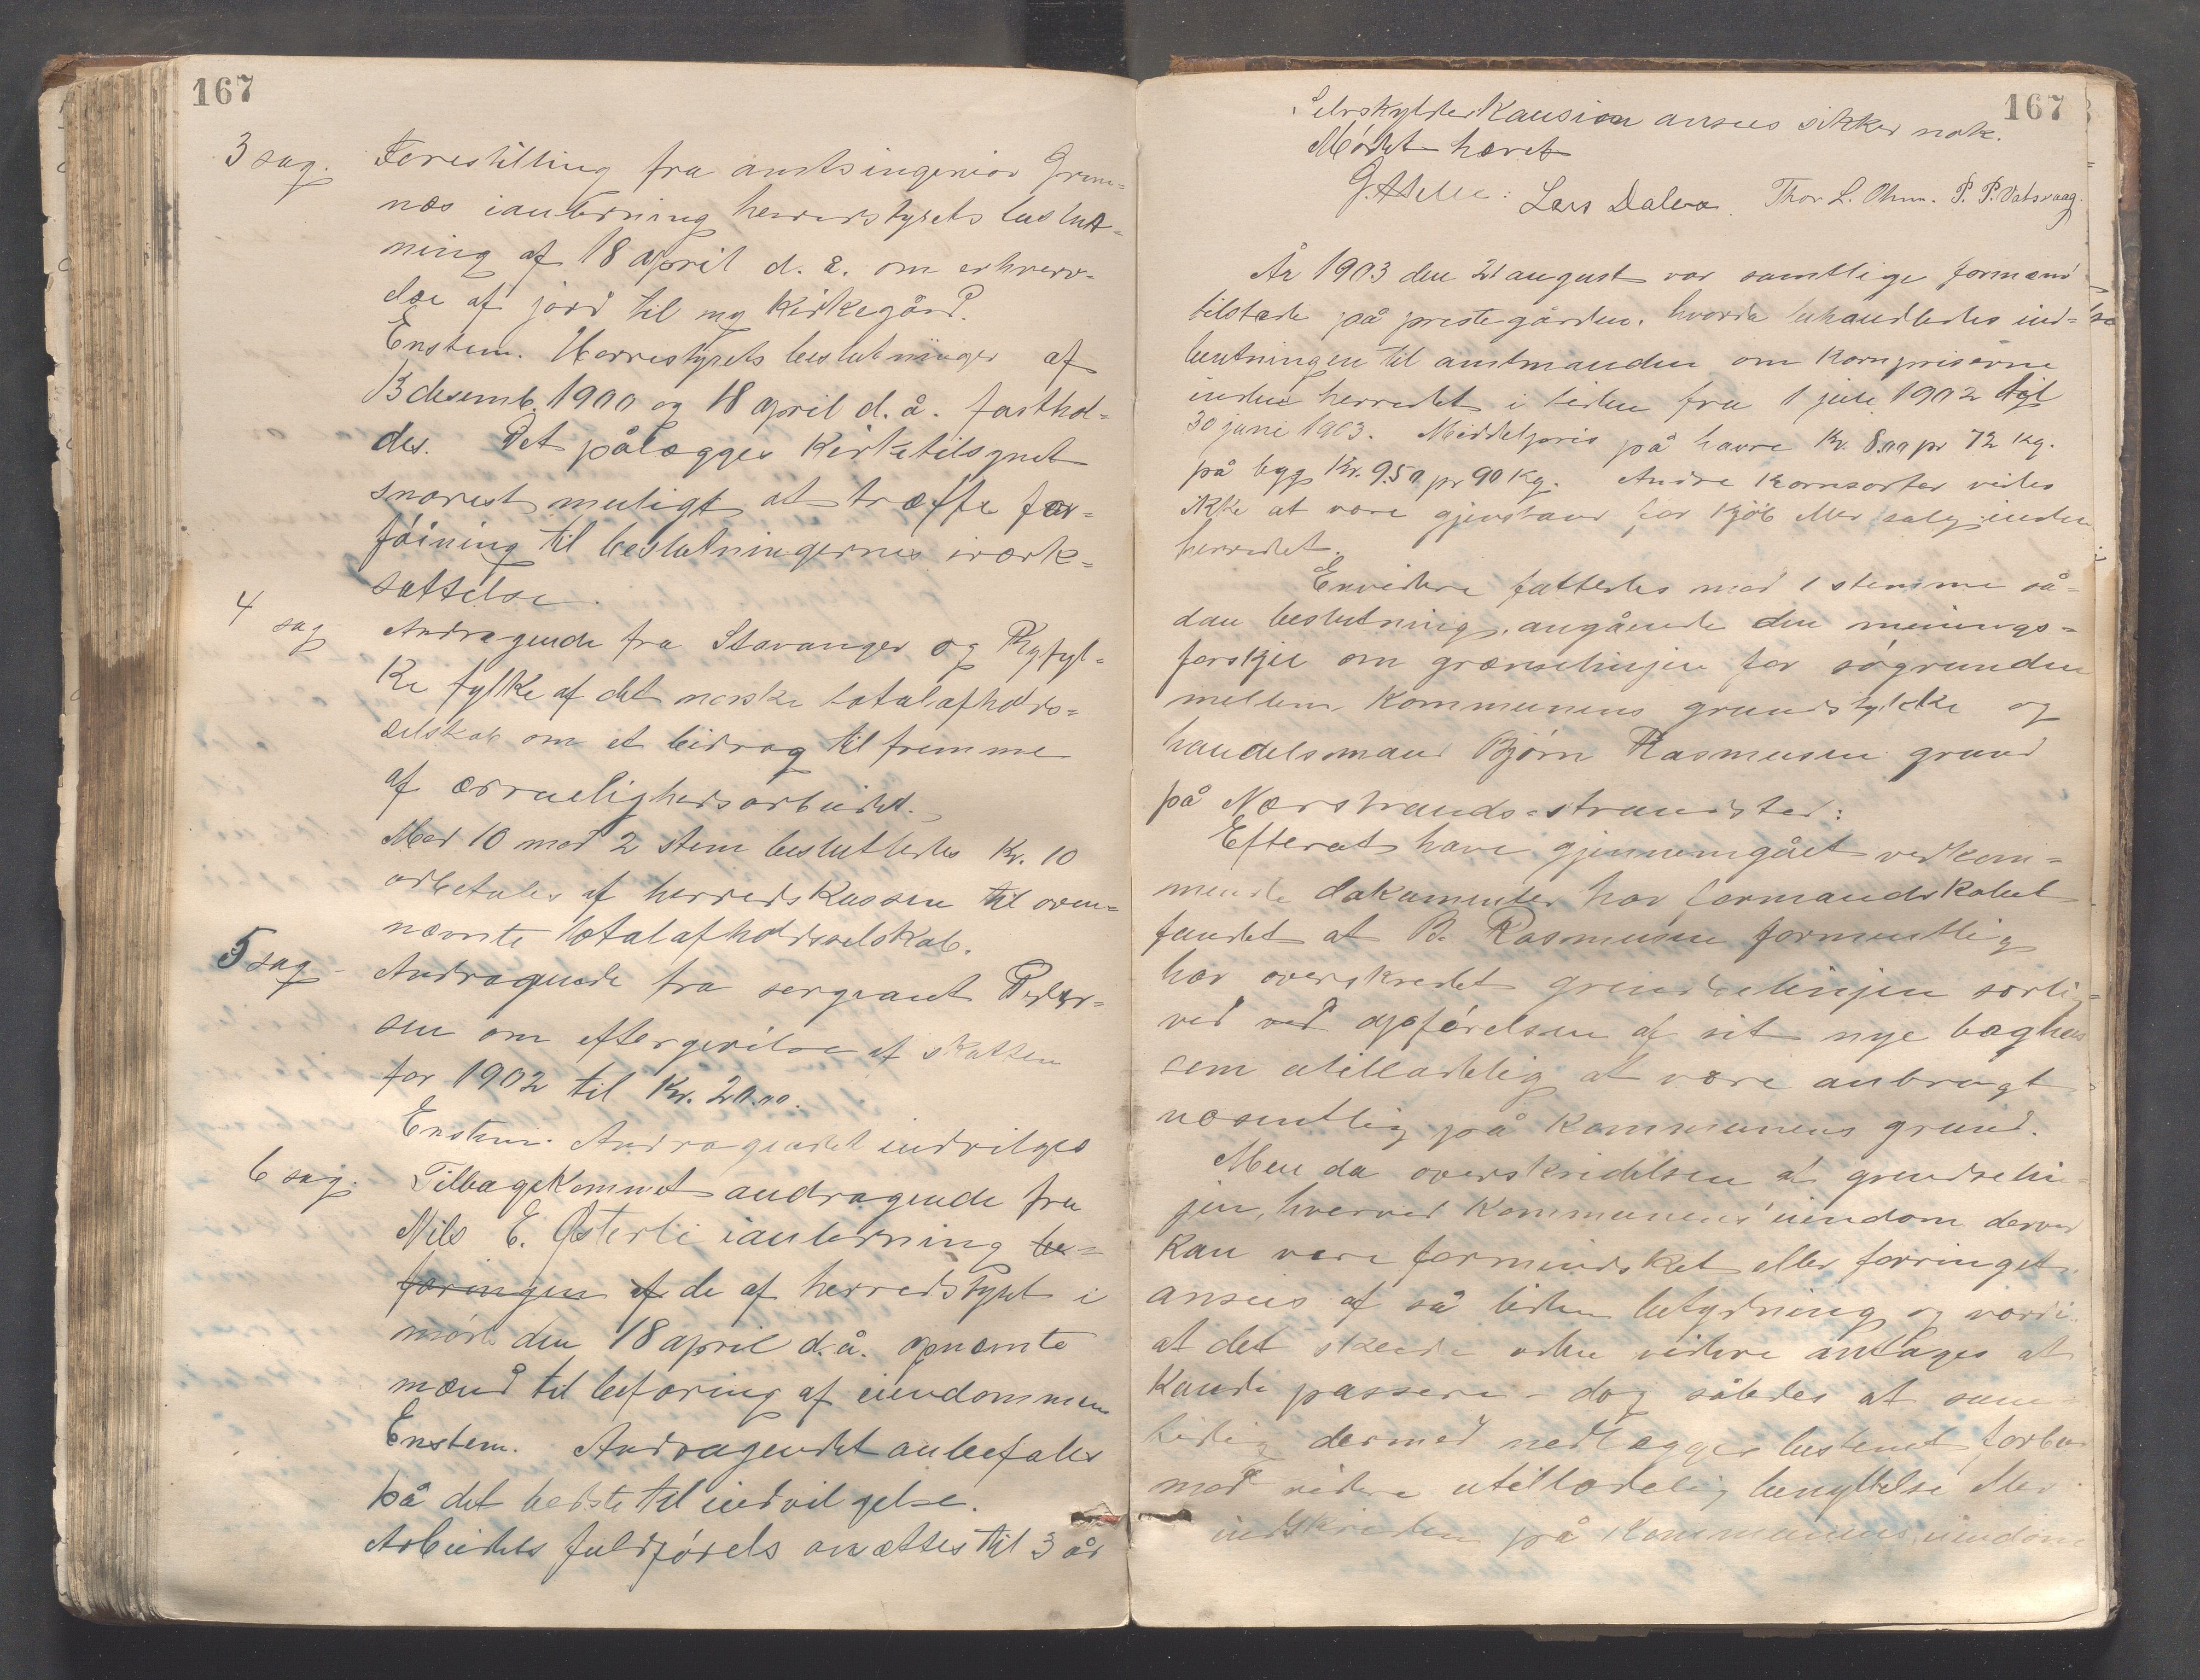 167
3 sag. Forestilling fra amtsingeniør Grim=
næs ianledning herredstyrets beslut=
ning af 18 april d. å. om erhverv-
else af jord til ny Kirkegård.
Enstem. Herrestyrets beslutninger af
13 desemb. 1900 og 18 april d. å. fasthol=
des. Det pålægges Kirketilsynet
snarest muligt at træffe for=
føining til beslutningernes iværk=
sættelse.
4 sag Andragende fra Stavanger og Ryfyl=
ke fylke af det norske totalafholds=
selskab om et bidrag til fremme
af ædruelighedsarbeidet.
Med 10 mod 2 stem besluttedes Kr. 10
udbetales af herredskassen til oven=
nævnte totalafholdsselskab.
5 sag - Andragende fra sergeant Peder=
sen om eftergivelse af skatten
for 1902 til Kr. 20.00.
Enstem. Andragendet indvilges
6 sag. Tilbagekommet andragende fra
Nils E. Østerli ianledning be=
faringen af de af herredstyret i
møde den 18 april d. å. opnævnte
mænd til befaring af eiendommen
Enstem. Andragendet anbefales
på det bedste til indvilgelse.
Arbeidets fuldførels ansættes til 3 år
167
Selvskylderkausion ansees sikker nok.
Mødet hævet
Lars Dalva. Thor L. P. P. Vatsvaag.
År 1903 den 21 august var samtlige formænd
tilstede på prestegården, hvorda behandledes ind=
beretningen til amtmanden om Kornpriserne
inden herredet i tiden fra 1 juli 1902 til
30 juni 1903. Middelpris på havre Kr. 8.00 pr 72 Kg.
på byg Kr. 9.50 pr 90 Kg. Andre Kornsorter vides
ikke at være gjenstand for Kjøb eller salg inden
herredet.
Envidere fattedes med 1 stemme så=
dan beslutning, angående den menings=
forskjel om grænselinjen for søgrunden
mellem Kommunens grundstykke og
handelsmand Bjørn Rasmusen grund
på Nærstrands-strandsted:
Efterat have gjennemgået vedkom=
mende dokumenter har formandskabet
fundet at B. Rasmusen formentlig
har overskredet grændselinjen særlig
ved ved opførelsen af sit nye baghus
som utilladelig at være anbragt
væsentlig på Kommunens grund.
Men da overskridelsen af grendselin=
jen, hvorved Kommunens eiendom derved
Kan være formindsket eller forringet,
ansees af så liden betydning og værdi
at det skeede uden videre antages at
Kunde passere - dog således at sam=
tidig dermed nedlægges bestemt forbud
mod videre utilladelig benyttelse eller
indskriden på Kommunens eiendom